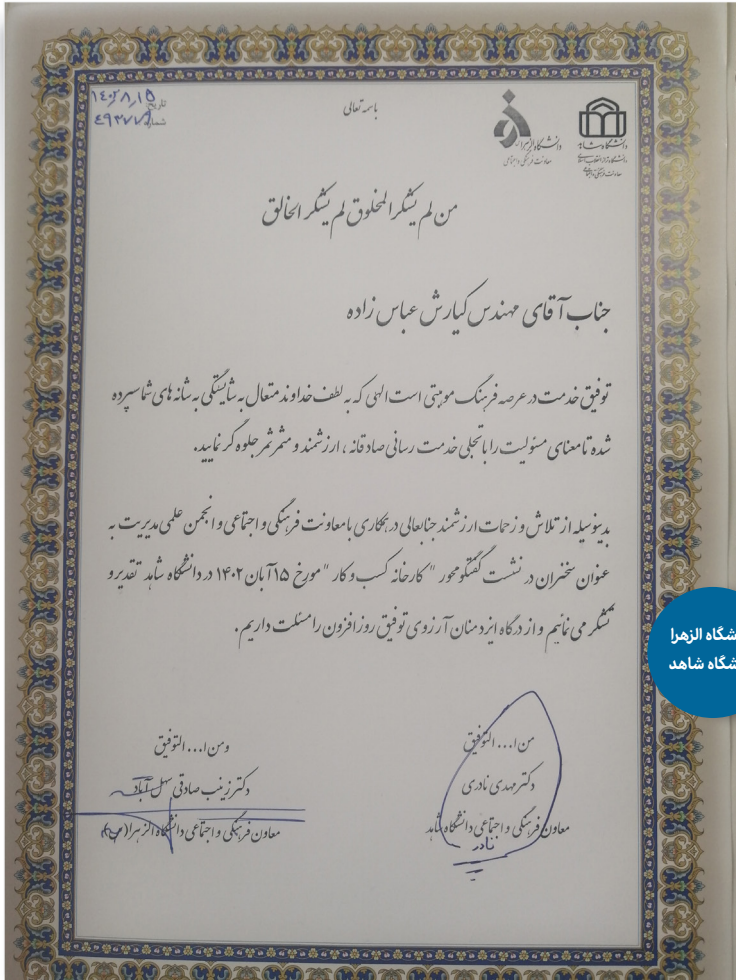 باسمه تعالی
تاریخ: ۱۴۰۲/۸/۱۵
شماره:
دانشگاه شاهد
معاونت فرهنگی و اجتماعی
دانشگاه الزهرا(س)
معاونت فرهنگی و اجتماعی
من لم یشکر المخلوق لم یشکر الخالق
جناب آقای مهندس کیارش عباس زاده
توفیق خدمت در عرصه فرهنگ موهبتی است الهی که به لطف خداوند متعال به شایستگی به شانه های شما سپرده
شده تا معنای مسئولیت را با تجلی خدمت رسانی صادقانه، ارزشمند و مثمرثمر جلوه گر نمایید.
بدینوسیله از تلاش و زحمات ارزشمند جنابعالی در همکاری با معاونت فرهنگی و اجتماعی و انجمن علمی مدیریت به
عنوان سخنران در نشست گفتگو محور "کارخانه کسب و کار" مورخ ۱۵ آبان ۱۴۰۲ در دانشگاه شاهد تقدیر و
تشکر می نمائیم و از درگاه ایزد منان آرزوی توفیق روزافزون را مسئلت داریم.
شگاه الزهرا
شگاه شاهد
من ا... التوفیق
دکتر مهدی نادری
معاون فرهنگی و اجتماعی دانشگاه شاهد
ومن ا... التوفیق
دکتر زینب صادقی سهل آباد
معاون فرهنگی و اجتماعی دانشگاه الزهرا(س)